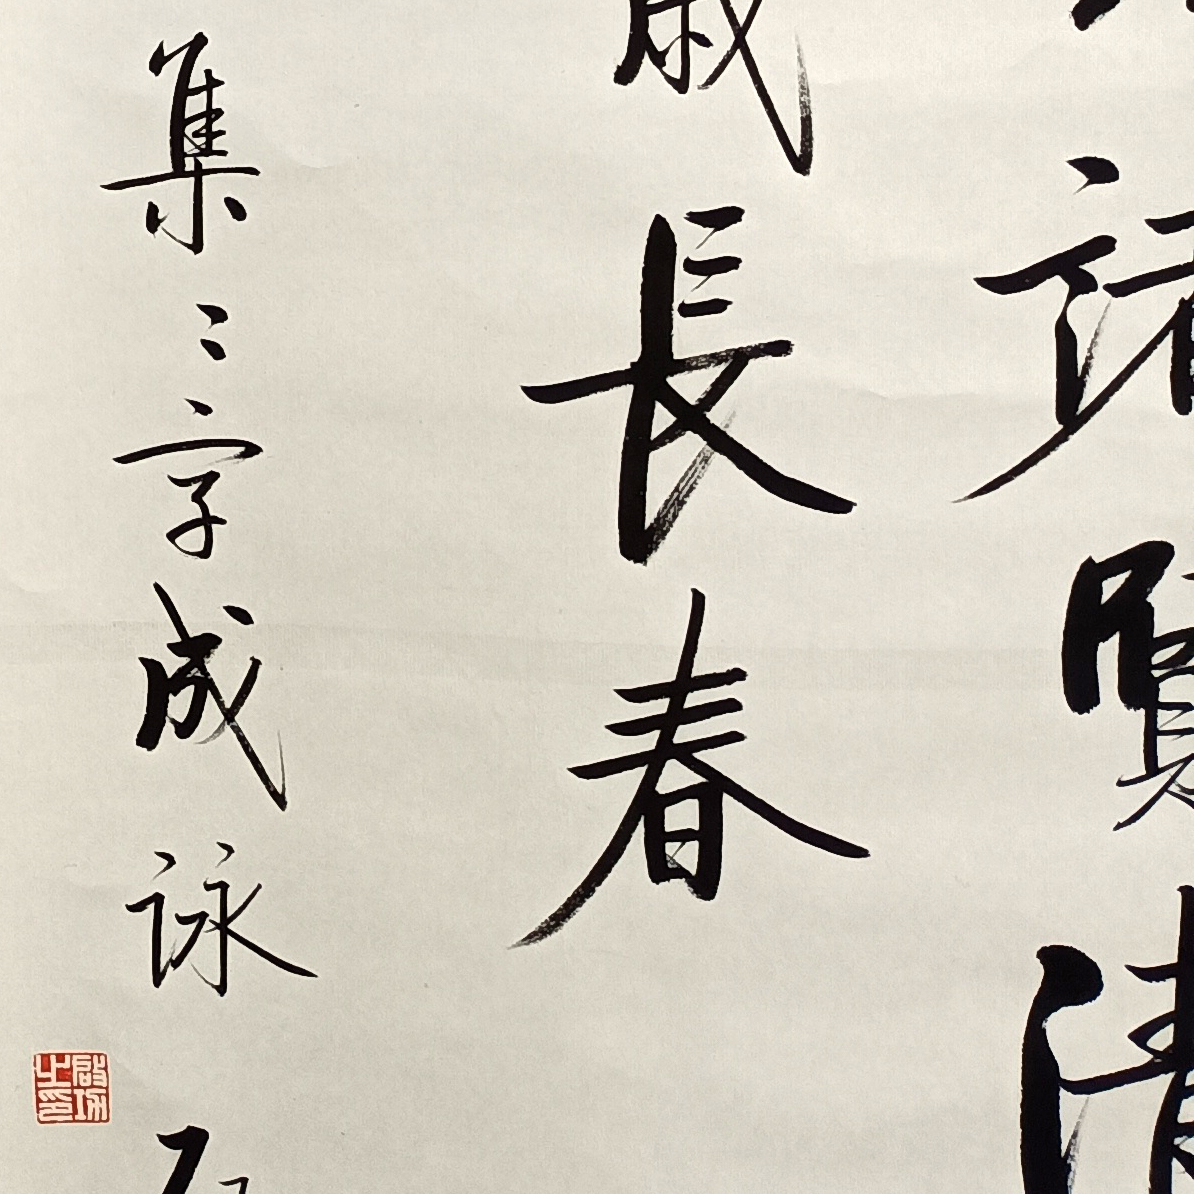 諸賢清
歲長春
集〻字成詠
啟功之印